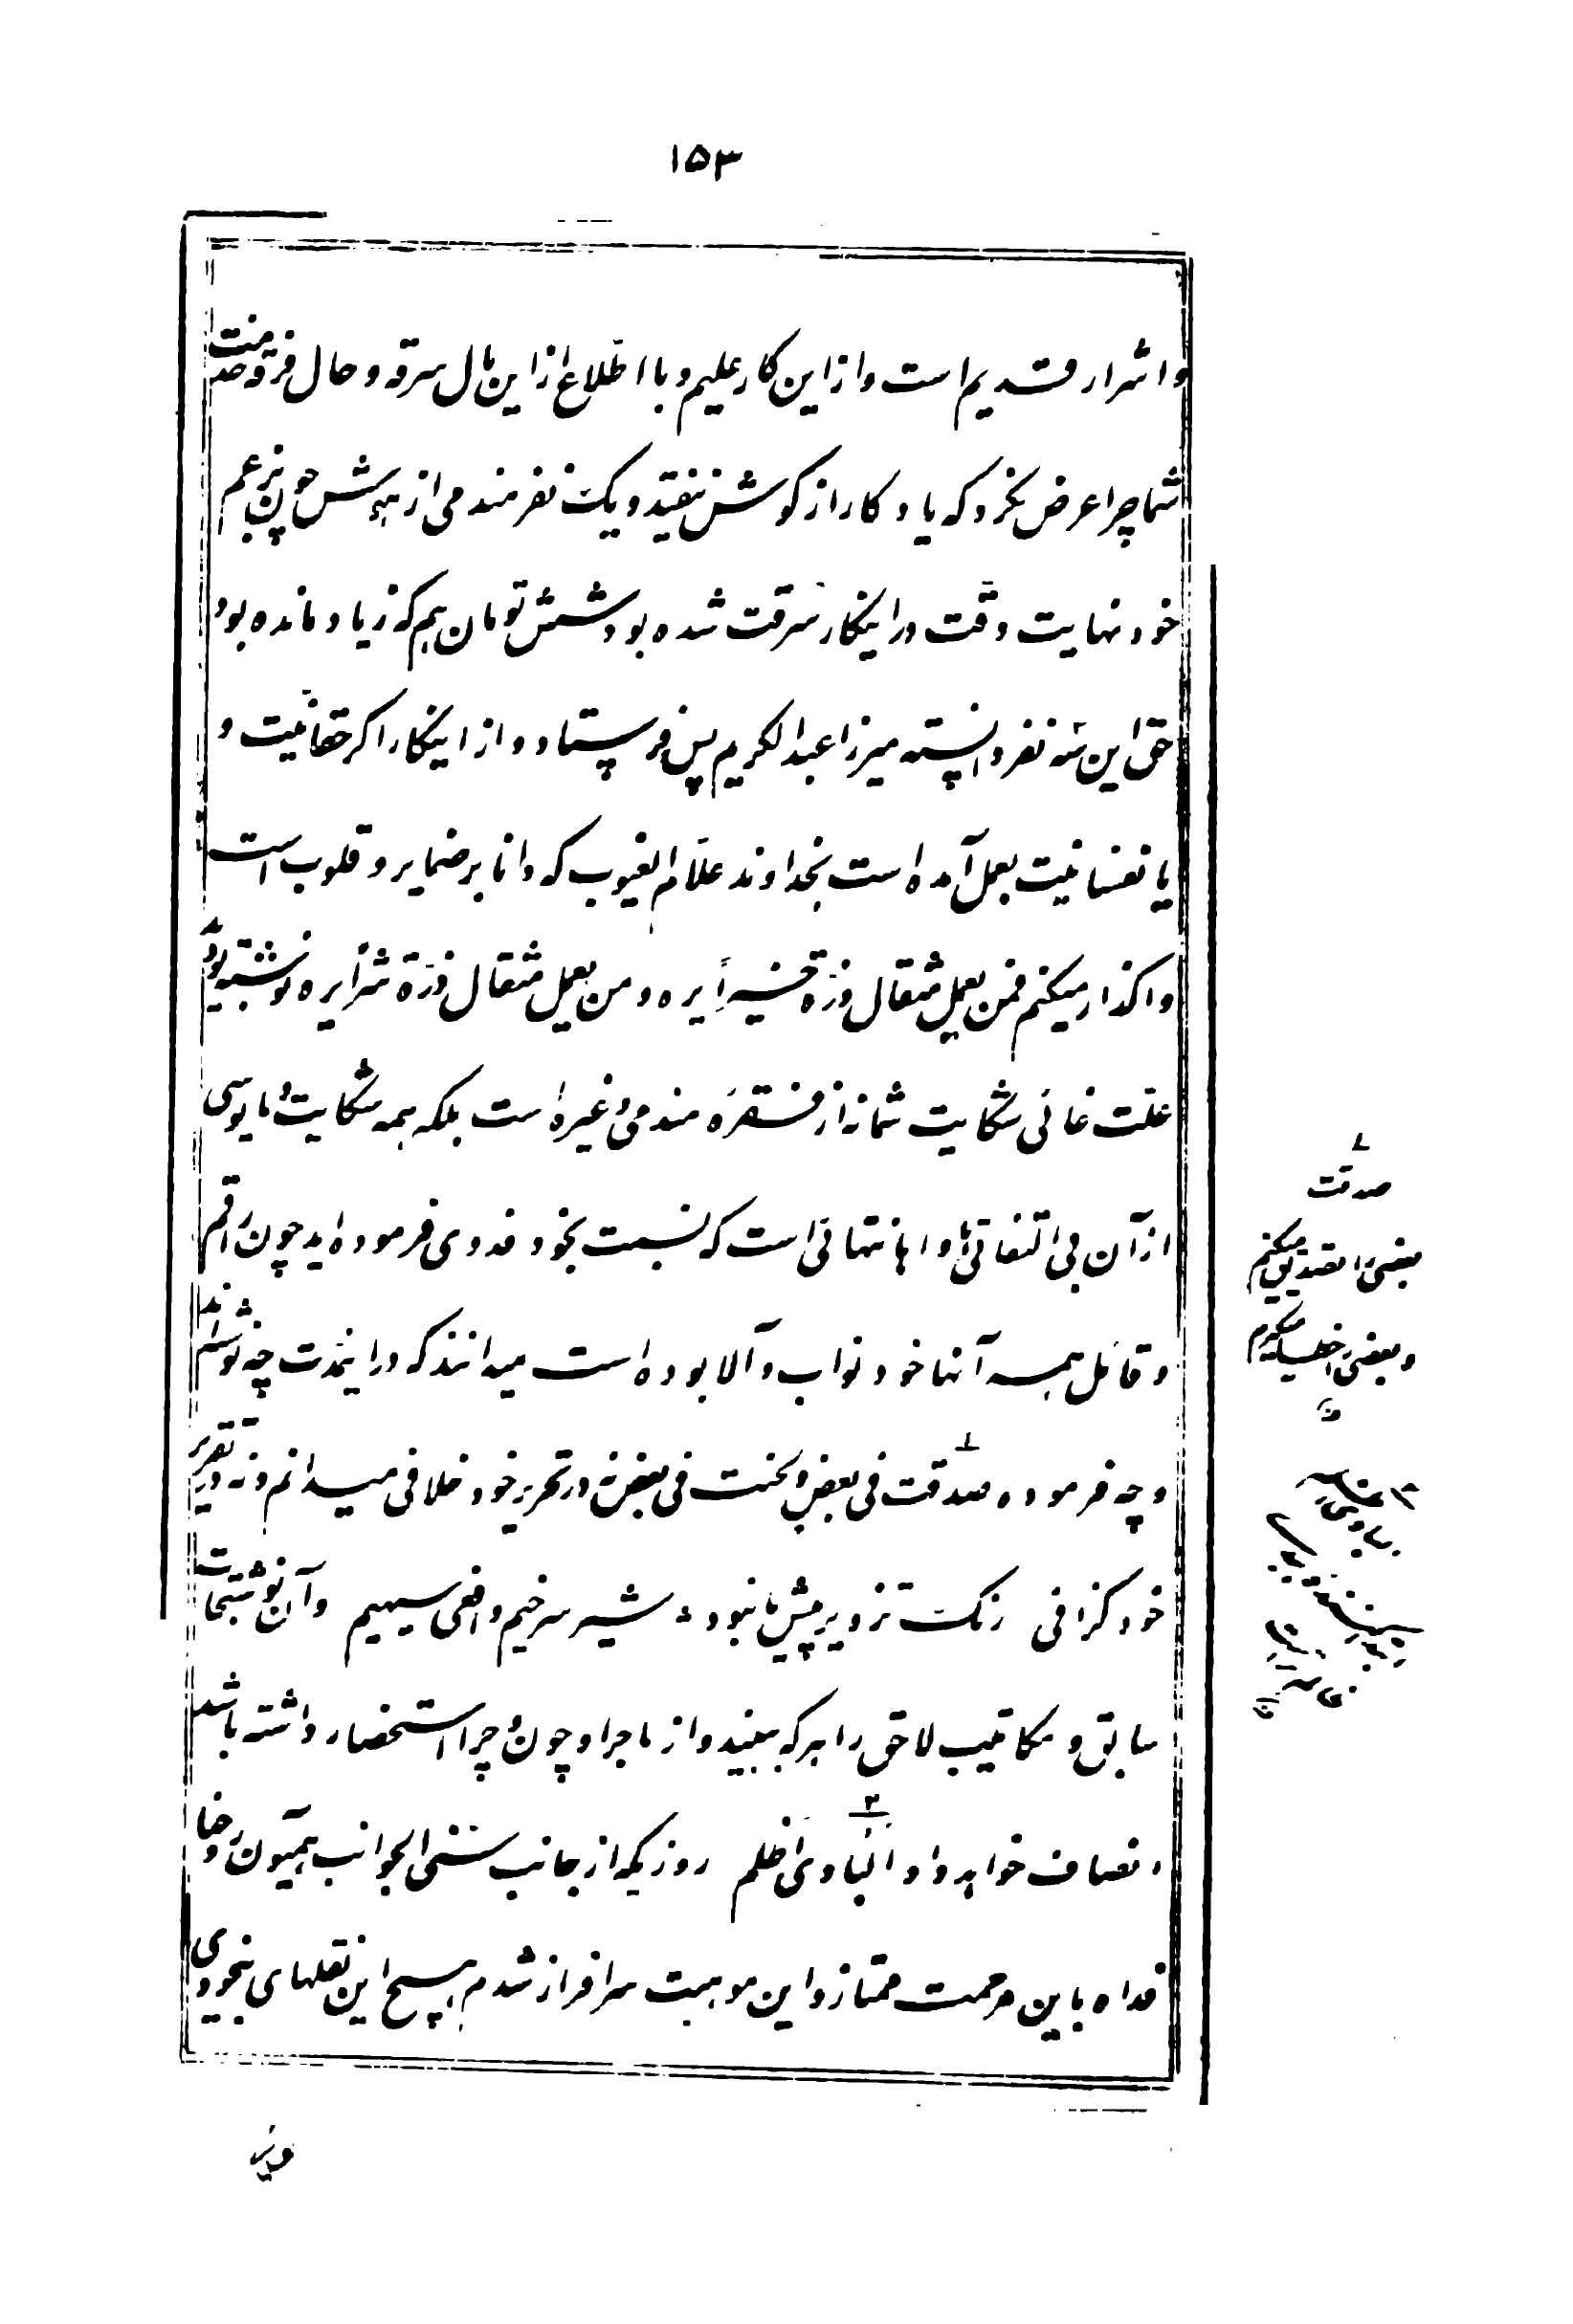 ۱۵۳
و اشرار قدیم است و از این کار علیم و با اطلاع از این مال سرقه و حال فرقه خدمت
شما چرا عرض نکرد که یاد کار از کوشش نیفتد و یک نفر مندمی از هوش چون بزعم
خود نهایت دقت در اینکار سرقت شده بود شش تومان هم که زیاد مانده بود
حق این سه نفر دانسته میرزا عبدالکریم پس فرستاد و از اینکار اگر حقانیت و
یا نفسانیت بعمل آمده است بخداوند علام الغیوب که دانا بر ضمایر و قلوب است
واکذار میکنم فمن یعمل مثقال ذرة خیراً یره و من یعمل مثقال ذرة شراً یره نوشته بودید
علت غائی شکایت شما نه از فقره مندمی و غیره است بلکه همه شکایت و مایوسی
از آن بی التفاتی‌ها و اهانتهائی است که نسبت بخود فدوی فرموده‌اید چون راقم
و قائل همه آنها خود نواب والا بوده است میدانند که در اینمدت چه نوشته‌اند
و چه فرموده صدقت فی بعض و لخنت فی بعض نه در تحریر خود خلافی میدانم و نه در تقریر
خود کزافی رنک تزویر پیش ما نبود شیر سرخیم و افعی سیهیم و آن نوشتجات
سابق و مکاتیب لاحق را هر که ببیند و از ماجرا و چون و چرا استحضار داشته باشد
انصاف خواهد داد البادی اظلم روزیکه از جانب سنی الجوانب همیون روحنا
فداه باین مرحمت ممتاز و این موهبت سرافراز شدم هیچ این نقلهای بیخودی
صدقت
بعضی را تصدیق میکنم
و بعضی را